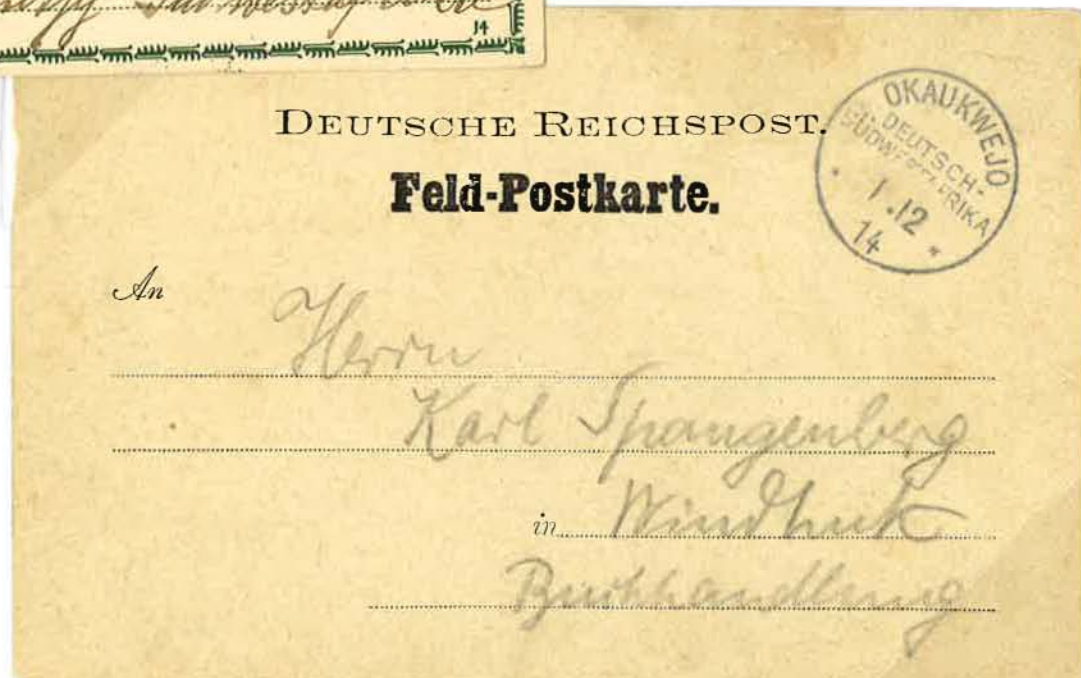 14
DEUTSCHE REICHSPOST.
Feld-Postkarte.
OKAUKWEJO
DEUTSCH-
SÜDWESTAFRIKA
1.12
14
An
Herrn
Karl Spangenberg
in Windhuk
Buchhandlung